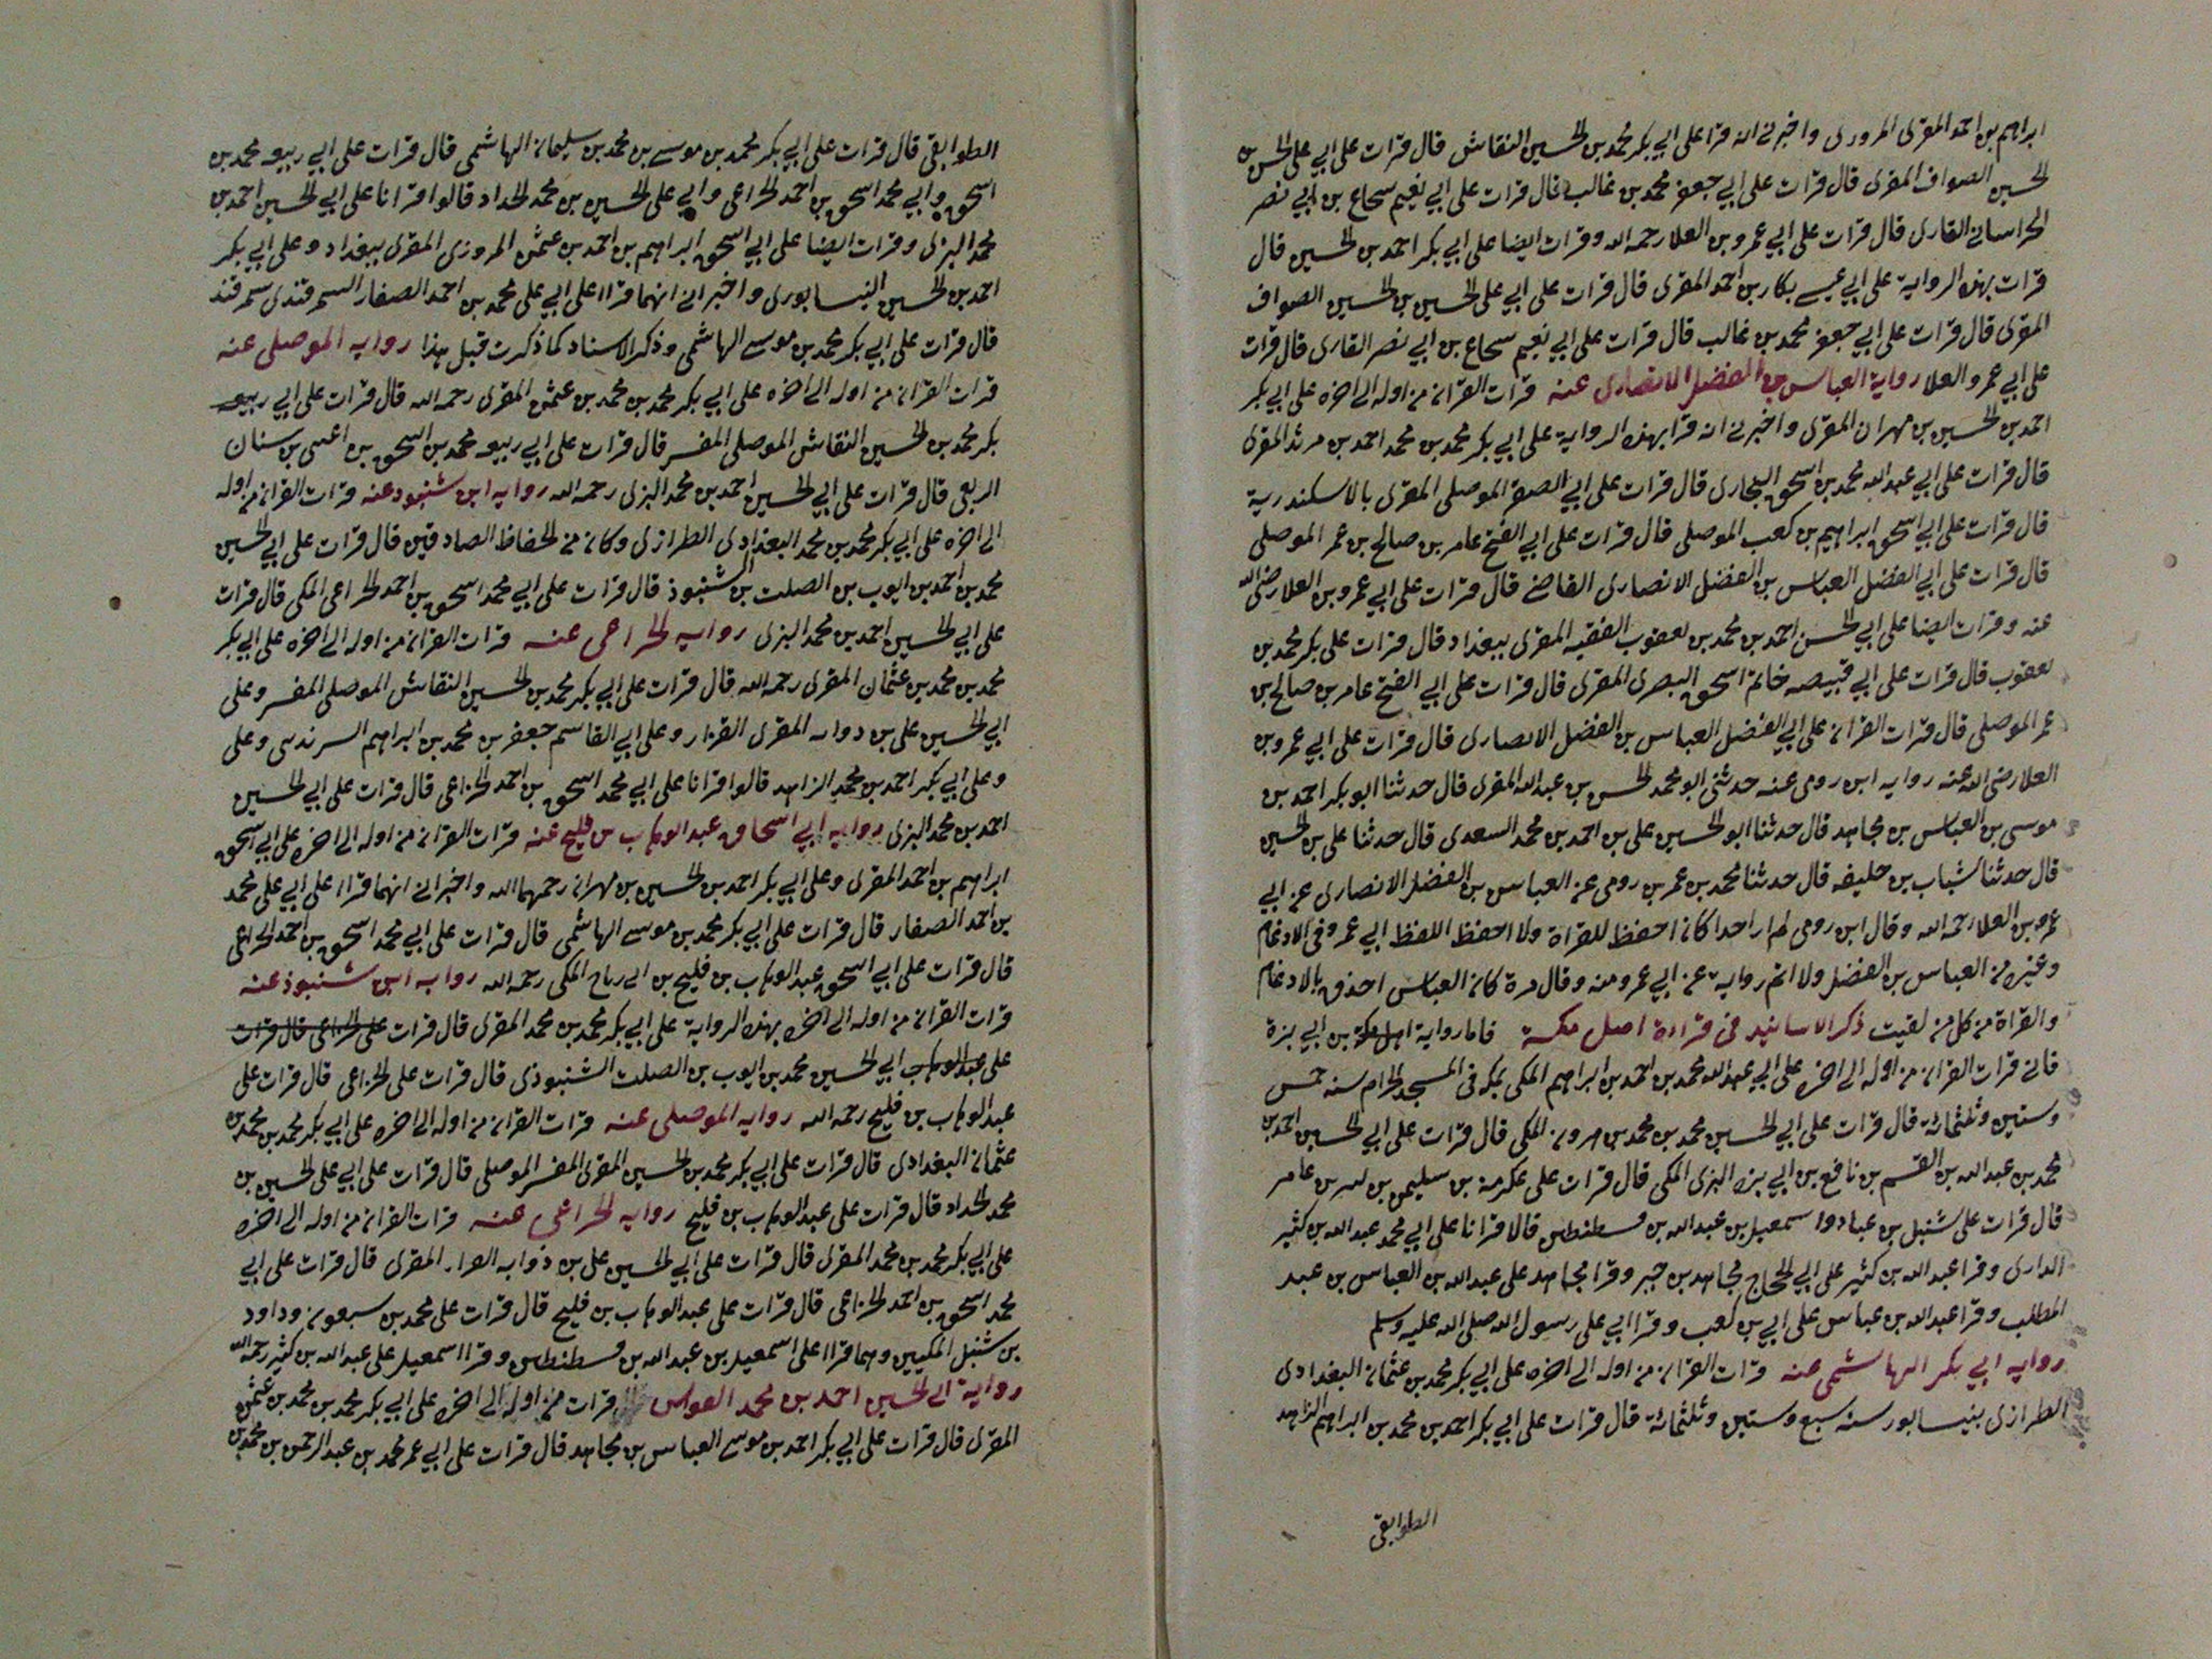 ابراهيم بن احمد المقرى المروزى واخبرنى انه قرا على ابي بكر محمد بن الحسين النقاش قال قرات على ابي على الحسن بن
الحسين الصواف المقرى قال قرات على ابي جعفر محمد بن غالب قال قرات على ابي نعيم سجاع بن ابي نصر
الخراسانى القارى قال قرات على ابي عمرو بن العلا رحمه الله وقرات ايضا على ابي بكر احمد بن الحسين قال
قرات بهذه الرواية على ابي عيسى بكار بن احمد المقرى قال قرات على ابي على الحسين بن الحسين الصواف
المقرى قال قرات على ابي جعفر محمد بن غالب قال قرات على ابي نعيم سجاع بن ابي نصر القارى قال قرات
على ابي عمرو العلا رواية العباس بن الفضل الانصارى عنه قرات القران من اوله الى اخره على ابي بكر
احمد بن الحسين بن مهران المقرى واخبرنى انه قرا بهذه الرواية على ابي بكر محمد بن محمد احمد بن مرثد المقرى
قال قرات على ابي عبد الله محمد بن اسحق البخارى قال قرات على ابي الصقر الموصلى المقرى بالاسكندرية
قال قرات على ابي اسحق ابراهيم بن كعب الموصلى قال قرات على ابي الفتح عامر بن صالح بن عمر الموصلى
قال قرات على ابي الفضل العباس بن الفضل الانصارى القاضى قال قرات على ابي عمرو بن العلا رضى الله
عنه وقرات ايضا على ابي الحسن احمد بن محمد بن يعقوب الفقيه المقرى ببغداد قال قرات على بكر محمد بن
يعقوب قال قرات على ابي قبيصه خاتم اسحق البصرى المقرى قال قرات على ابي الفتح عامر بن صالح بن
عمر الموصلى قال قرات القران على ابي الفضل العباس بن الفضل الانصارى قال قرات على ابي عمرو بن
العلا رضى الله عنه روايه ابن رومى عنه حدثنى ابو محمد الحسن بن عبد الله المقرى قال حدثنا ابو بكر احمد بن
موسى بن العباس بن مجاهد قال حدثنا ابو الحسين على بن احمد بن محمد السعدى قال حدثنا على بن الحسين
قال حدثنا شباب بن خليفه قال حدثنا محمد بن عمر بن رومى عن العباس بن الفضل الانصارى عن ابي
عمرو بن العلا رحمه الله وقال ابن رومى لم ار احدا كان احفظ للقراة ولا احفظ اللفظ ابي عمرو فى الادغام
وغيره من العباس بن الفضل ولا اتم رواية عن ابي عمرو منه وقال مرة كان العباس احذق بالادغام
والقراة من كل من لقيت ذكر الاسانيد فى قراءة اهل مكة فاما رواية اهل مكة بن ابي بزة
فانى قرات القران من اوله الى اخره على ابي عبد الله محمد بن احمد بن ابراهيم المكى بمكه فى المسجد الحرام سنه خمس
وستين وثلثمائة قال قرات على ابي الحسين محمد بن محمد بن هرون المكى قال قرات على ابي الحسين احمد بن
محمد بن عبد الله بن القسم بن نافع بن ابي بزه البزى المكى قال قرات على عكرمة بن سليمن بن عامر
قال قرات على شنبل بن عباد واسمعيل بن عبد الله بن قسطنطين قالا قرانا على ابي محمد عبد الله بن كثير
الدارى وقرا عبد الله بن كثير على ابي الحجاج مجاهد بن جبر وقرا مجاهد على عبد الله بن العباس بن عبد
المطلب وقرا عبد الله بن عباس على ابي بن كعب وقرا ابي على رسول الله صلى الله عليه وسلم
روايه ابي بكر الهاشمى عنه قرات القران من اوله الى اخره على ابي بكر محمد بن عثمان البغدادى
الطرازى بنيسابور سنه سبع وستين وثلثمائة قال قرات على ابي بكر احمد بن محمد بن ابراهيم الزاهد
الطوابقى
الطوابقى قال قرات على ابي بكر محمد بن موسى بن محمد بن سليمان الهاشمى قال قرات على ابي ربيعه محمد بن
اسحق وابي محمد اسحق بن احمد الخزاعى وابي على الحسين بن محمد الحداد قالوا قرانا على ابي الحسين احمد بن
محمد البزى وقرات ايضا على ابي اسحق ابراهيم بن احمد بن عثمن المروزى المقرى ببغداد وعلى ابي بكر
احمد بن الحسين النيسابورى واخبرانى انهما قراا على ابي على محمد بن احمد الصفار السمرقندى سمرقند
قال قرات على ابي بكر محمد بن موسى الهاشمى وذكر الاسناد كما ذكرت قبل هذا روايه الموصلى عنه
قرات القران من اوله الى اخره على ابي بكر محمد بن محمد بن عثمن المقرى رحمه الله قال قرات على ابي ربيعه
بكر محمد بن الحسين النقاش الموصلى المفسر قال قرات على ابي ربيعه محمد بن اسحق بن اعين بن سنان
الربعى قال قرات على ابي الحسين احمد بن محمد البزى رحمه الله روايه ابن شنبوذ عنه قرات القران من اوله
الى اخره على ابي بكر محمد بن محمد البغدادى الطرازى وكان من الحفاظ الصادقين قال قرات على ابي الحسين
محمد بن احمد بن ايوب بن الصلت بن الشنبوذ قال قرات على ابي محمد اسحق بن احمد الخزاعى المكى قال قرات
على ابي الحسين احمد بن محمد البزى روايه الخزاعى عنه قرات القران من اوله الى اخره على ابي بكر
محمد بن محمد بن عثمان المقرى رحمه الله قال قرات على ابي بكر محمد بن الحسين النقاش الموصلى المفسر وعلى
ابي الحسين على بن المقرى القزاز وعلى ابي القاسم جعفر بن محمد بن ابراهيم وعلى
وعلى ابي بكر احمد بن محمد الزاهد قالوا قرانا على ابي محمد اسحق بن احمد الخزاعى قال قرات على ابي الحسين
احمد بن محمد البزى روايه ابي اسحاق عبد الوهاب بن فليح عنه قرات القران من اوله الى اخره على ابي اسحق
ابراهيم بن احمد المقرى وعلى ابي بكر احمد بن الحسين بن مهران رحمهما الله واخبرانى انهما قراا على ابي على محمد
بن احمد الصفار قال قرات على ابي بكر محمد بن موسى الهاشمى قال قرات على ابي محمد اسحق بن احمد الخزاعى
قال قرات على ابي اسحق عبد الوهاب بن فليح بن ابى رباح المكى رحمه الله روايه ابن شنبوذ عنه
قرات القران من اوله الى اخره بهذه الرواية على ابي بكر محمد بن محمد المقرى قال قرات على الخزاعى قال قرات
على عبد الوهاب ابي الحسين محمد بن ايوب بن الصلت الشنبوذى قال قرات على الخزاعى قال قرات على
عبد الوهاب بن فليح رحمه الله روايه الموصلى عنه قرات القران من اوله الى اخره على ابي بكر محمد بن محمد بن
عثمان البغدادى قال قرات على ابي بكر محمد بن الحسين المقرى المفسر الموصلى قال قرات على ابي على الحسين بن
محمد الحداد قال قرات على عبد الوهاب بن فليح روايه الخزاعى عنه قرات القران من اوله الى اخره
على ابي بكر محمد بن محمد المقرى قال قرات على ابي الحسين على بن ذوابه المقرى قال قرات على ابي
محمد اسحق بن احمد الخزاعى قال قرات على عبد الوهاب بن فليح قال قرات على محمد بن سبعون وداود
بن شنبل المكيين وهما قراا على اسمعيل بن عبد الله بن قسطنطين وقرا اسمعيل على عبد الله بن كثير رحمه الله
رواية ابى الحسين احمد بن محمد القواس قرات من اوله الى اخره على ابي بكر محمد بن محمد بن عثمن
المقرى قال قرات على ابي بكر احمد بن موسى العباس بن مجاهد قال قرات على ابي عمر محمد بن عبد الرحمن بن محمد بن